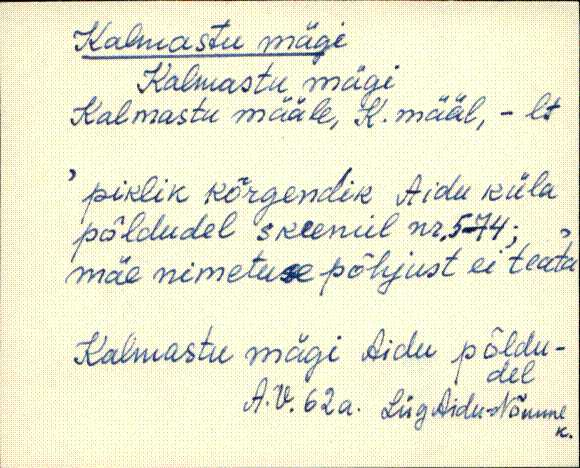 Kalmastu mägi
Kalmastu mägi
Kalmastu määle, K. määl, - lt
' piklik kõrgendik Aidu küla
põldudel skeemil nr. 574;
mäe nimetuse põhjust ei teata'
Kalmastu mägi Aidu põldu-
del
A.V. 62a. Lüg Aidu-Nõmme
k.